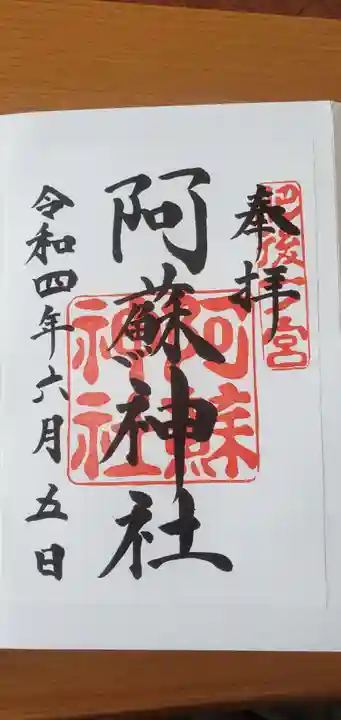 奉拝
肥後一宮
阿蘇神社
阿蘇
神社
令和四年六月五日